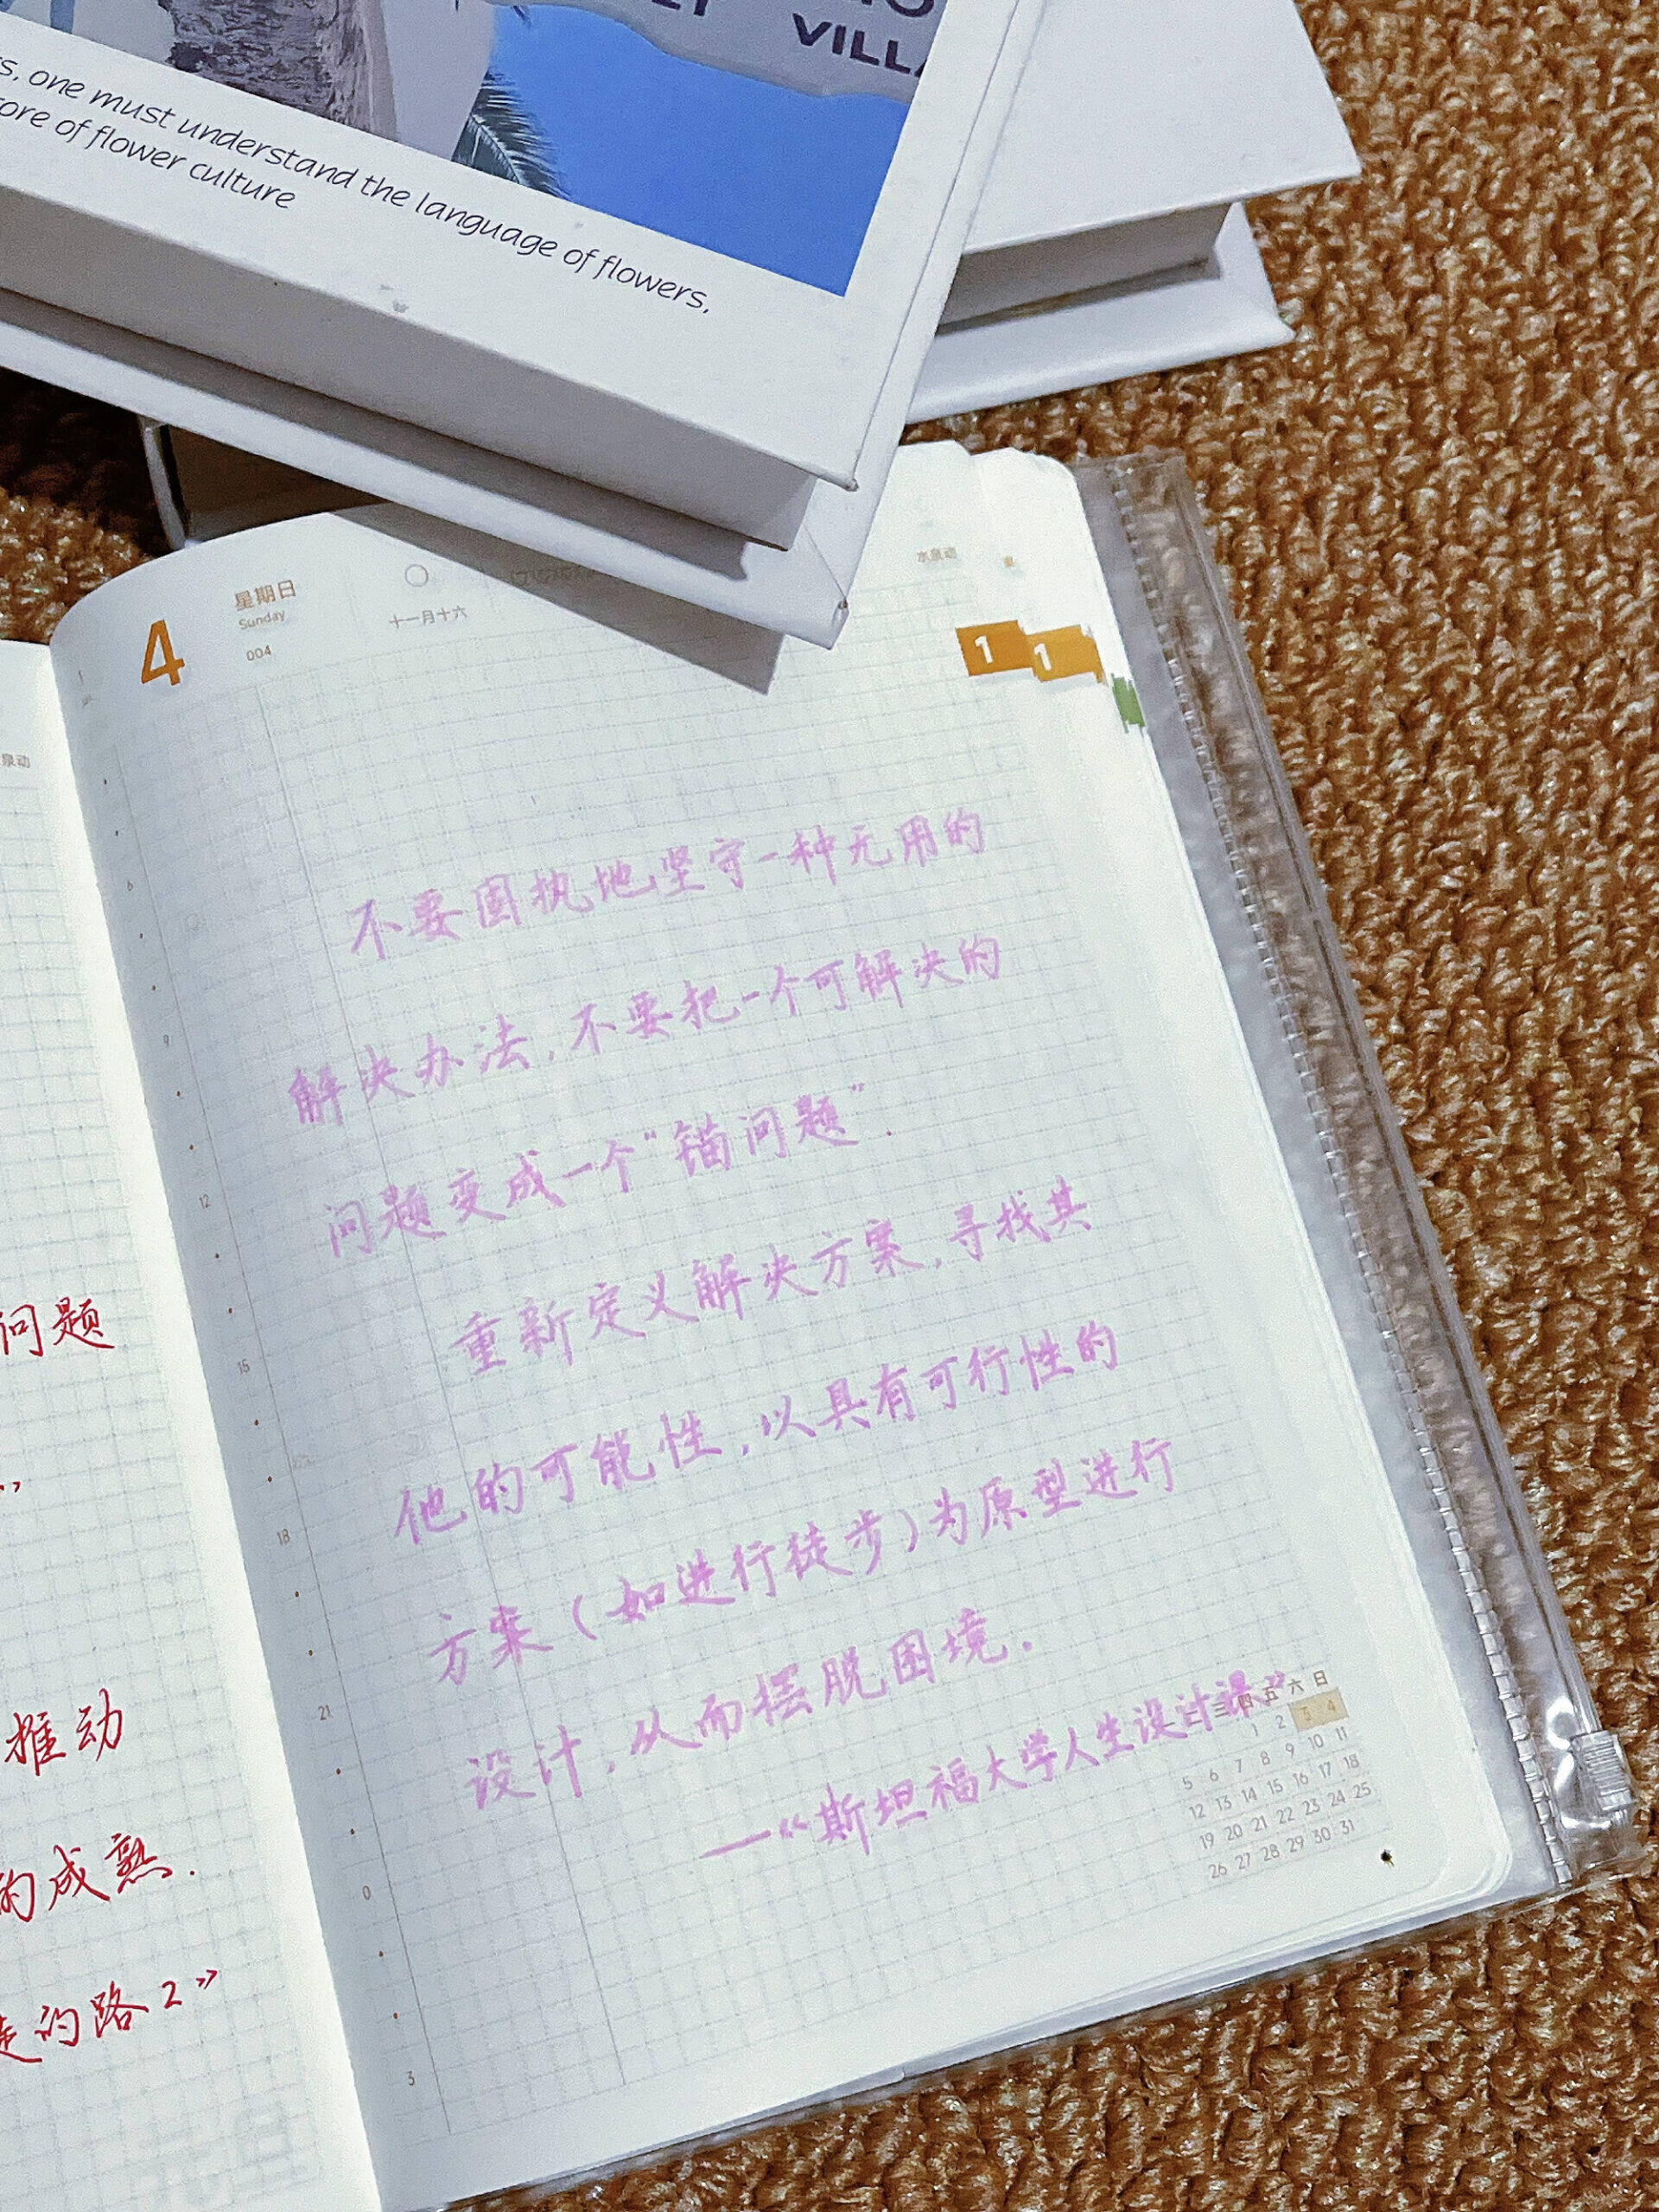 VILLA
one must understand the language of flowers,
ore of flower culture
4
星期日
Sunday
004
十一月十六
水泉动
1
1
不要固执地坚守一种无用的
解决办法,不要把一个可解决的
问题变成一个“锚问题”.
重新定义解决方案,寻找其
他的可能性,以具有可行性的
方案(如进行徒步)为原型进行
设计,从而摆脱困境.
—《斯坦福大学人生设计课》
三 四 五 六 日
1 2 3 4
5 6 7 8 9 10 11
12 13 14 15 16 17 18
19 20 21 22 23 24 25
26 27 28 29 30 31
6
9
12
15
18
21
0
3
泉动
问题
”
推动
的成熟.
的路2》